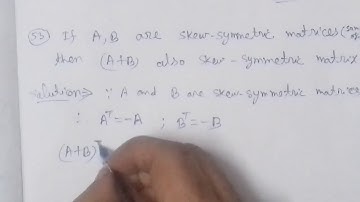 (53) If A, B are skew-symmetric matrices (
then (A+B) also skew-symmetric matrix
Solution⇒ ∵ A and B are skew-symmetric matrices
∴ Aᵀ = -A ; Bᵀ = -B
(A+B)ᵀ